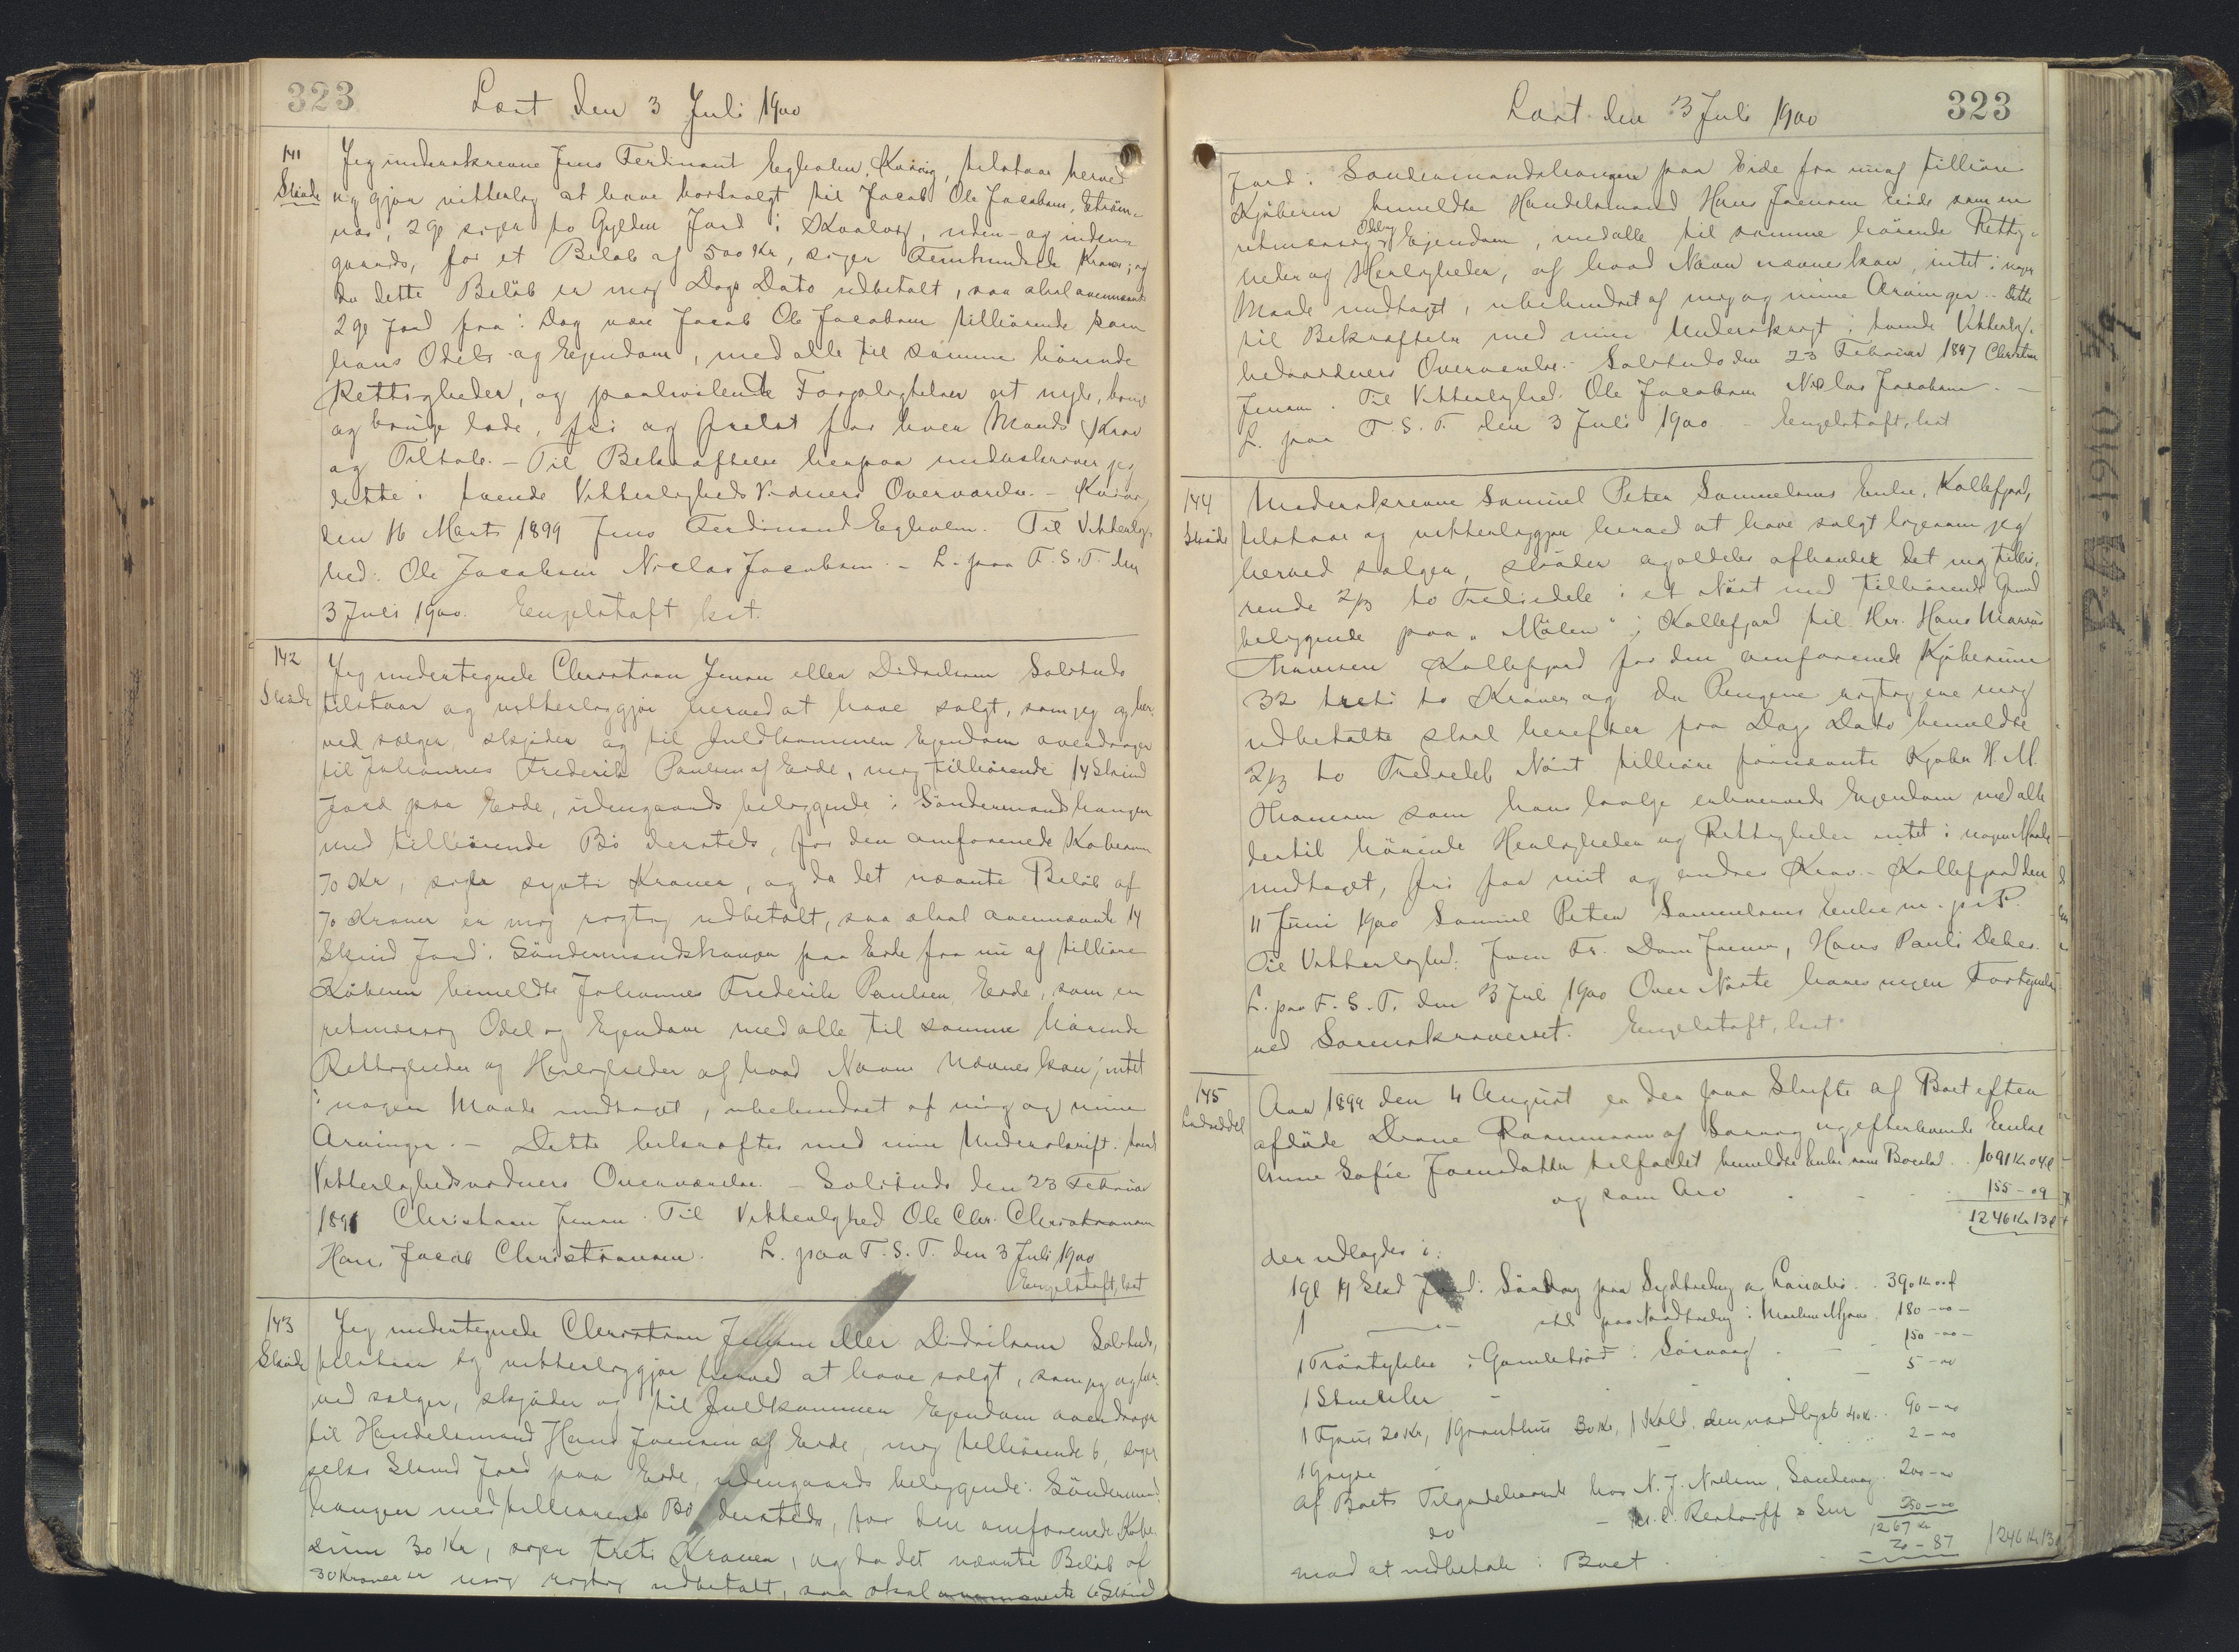 323
Læst den 3 Juli 1900
141
Skøde
Jeg underskrevne Jens Ferdinant Egholm, Kvivig, tilstaar herved
og gjør vitterlig at have bortsolgt til Jacob Ole Jacobsen, Strøm-
næs, 2 gl siger to Gylden Jord i Skælvig, uden- og inden-
gaards, for et Beløb af 500 Kr, siger Femhundrede Kroner; og
da dette Beløb er mig Dags Dato udbetalt, saa skal ovennævnte
2 gl Jord fra i Dag være Jacob Ole Jacobsen tilhørende som
hans Odels- og Ejendom, med alle til samme hørende
Rettigheder, og paahvilende Forpligtelser at nyde, bruge
og bruge lade, fri og frelst for hver Mands Krav
og Tiltale. - Til Bekræftelse herpaa underskriver jeg
dette i tvende Vitterligheds Vidners Overværelse. - Kvivig
den 16 Marts 1899 Jens Ferdinand Egholm. Til Vitterlig-
hed: Ole Jacobsen Niclas Jacobsen. - L. paa F. S. T. den
3 Juli 1900. Engelstoft, kst.
142
Skøde
Jeg undertegnede Christian Jensen eller Didriksen Solstuds
tilstaar og vitterliggjør herved at have solgt, som jeg og her-
ved sælger, skjøder og til fuldkommen Ejendom overdrager
til Johannes Frederik Poulsen af Eide, mig tilhørende 14 Skind
Jord paa Eide, udengaards beliggende i Søndermandshaugen
med tilhørende Bø dersteds, for den omforenede Købesum
70 Kr, siger sypti Kroner, og da det nævnte Beløb af
70 Kroner er mig rigtig udbetalt, saa skal ovennævnte 14
Skind Jord i Søndermandshaugen paa Eide fra nu af tilhøre
Køberen bemeldte Johannes Frederik Poulsen, Eide, som en
retmæssig Odel og Ejendom med alle til samme hørende
Rettigheder og Herligheder af hvad Navn nævnes kan; intet
i nogen Maade undtaget, ubehindret af mig og mine
Arvinger. - Dette bekræftes med min Underskrift i tvend
Vitterlighedsvidners Overværelse. - Solstuds den 23 Februar
1897 Christian Jensen. Til Vitterlighed Ole Chr. Christiansen
Hans Jacob Christiansen. L. paa F. S. T. den 3 Juli 1900
Engelstoft, kst
143
Skøde
Jeg undertegnede Christian Jensen eller Didriksen Solstuds,
tilstaar og vitterliggjør herved at have solgt, som jeg og her-
ved sælger, skjøder og til fuldkommen Ejendom overdrager
til Handelsmand Hans Joensen af Eide, mig tilhørende 6, siger
seks Skind Jord paa Eide, udengaards beliggende i Søndermands-
haugen med tilhørende Bø dersteds, for den omforenede Købe-
sum 30 Kr, siger treti Kroner, og da det nævnte Beløb af
30 Kroner er mig rigtig udbetalt, saa skal ovennævnte 6 Skind
Læst den 3 Juli 1900
323
Jord i Søndermandshaugen paa Eide fra nu af tilhøre
Kjøberen bemeldte Handelsmand Hans Joensen Eide som en
retmæssig Odel og Ejendom, med alle til samme hørende Rettig-
heder og Herligheder, af hvad Navn nævnes kan, intet i nogen
Maade undtaget, ubehindret af mig og mine Arvinger. - Dette
til Bekræftelse med min Underskrift i tvende Vitterlig-
hedsvidners Overværelse. - Solstuds den 23 Februar 1897 Christian
Jensen. Til Vitterlighed: Ole Jacobsen Niclas Jacobsen. -
L. paa F. S. T. den 3 Juli 1900 - Engelstoft, kst
144
Skøde
Underskrevne Samuel Peter Samuelsens Enke, Kollefjord,
tilstaar og vitterliggjør herved at have solgt ligesom jeg
herved sælger, skøder og aldeles afhænder det mig tilhø-
rende 2/3 to Trediedele i et Nøst med tilhørende Grund
beliggende paa "Mølen" i Kollefjord til Hr. Hans Marius
Thomsen Kollefjord for den omforenede Kjøbesum
32 treti to Kroner og da Pengene rigtig ere mig
udbetalte skal herefter fra Dags Dato bemeldte
2/3 to Trediedel Nøst tilhøre førnævnte Kjøber H. M.
Thomsen som hans lovlig erhvervede Ejendom med alle
dertil hørende Herligheder og Rettigheder intet i nogen Maade
undtaget, fri for mit og andres Krav. - Kollefjord den
11 Juni 1900 Samuel Peter Samuelsens Enke m. p. P.
Til Vitterlighed: Joen Fr. Dam Joensen, Hans Pauli Debes.
L. paa F. S. T. den 3 Juli 1900 Over Nøste haves ingen Fortegnelse
ved Sorenskriveriet. Engelstoft, kst
145
Lodseddel
Aar 1899 den 4 August er der paa Skifte af Boet efter
afdøde Rasmussen af Sørvaag og efterlevende Enke
Anne Sofie Joensdatter tilfaldet bemeldte Enke som Boeslod . . 1091 Kr 04 Ø
og som Arv . - . 155 - 09
1246 Kr 13 Ø
der udlagdes i:
1 gl 19 Skd Jord i Sørvaag paa Sydtredeg a . . 390 Kr 00 Ø
1 — " — std paa Nordtredeg i . 180 - 00 -
1 Trøstykke i i Sørvaag . - - 150 - 00 -
1 - 5 - 00
1 Hjaus 20 Kr, 1 Grønthus 30 Kr, 1 Kold. den nordligste 40 Kr. . 90 - 00
1 Gryde 2 - 00
Af Boets Tilgodehavende hos N. J. Nielsen, Sandevaag . 200 - 00
do - M. C. Restorff & Søn 250 - 00
1267 Kr
mod at udbetale i Boet . 20 - 87 1246 Kr 13 Ø
P.A. 1910 - 5/9.